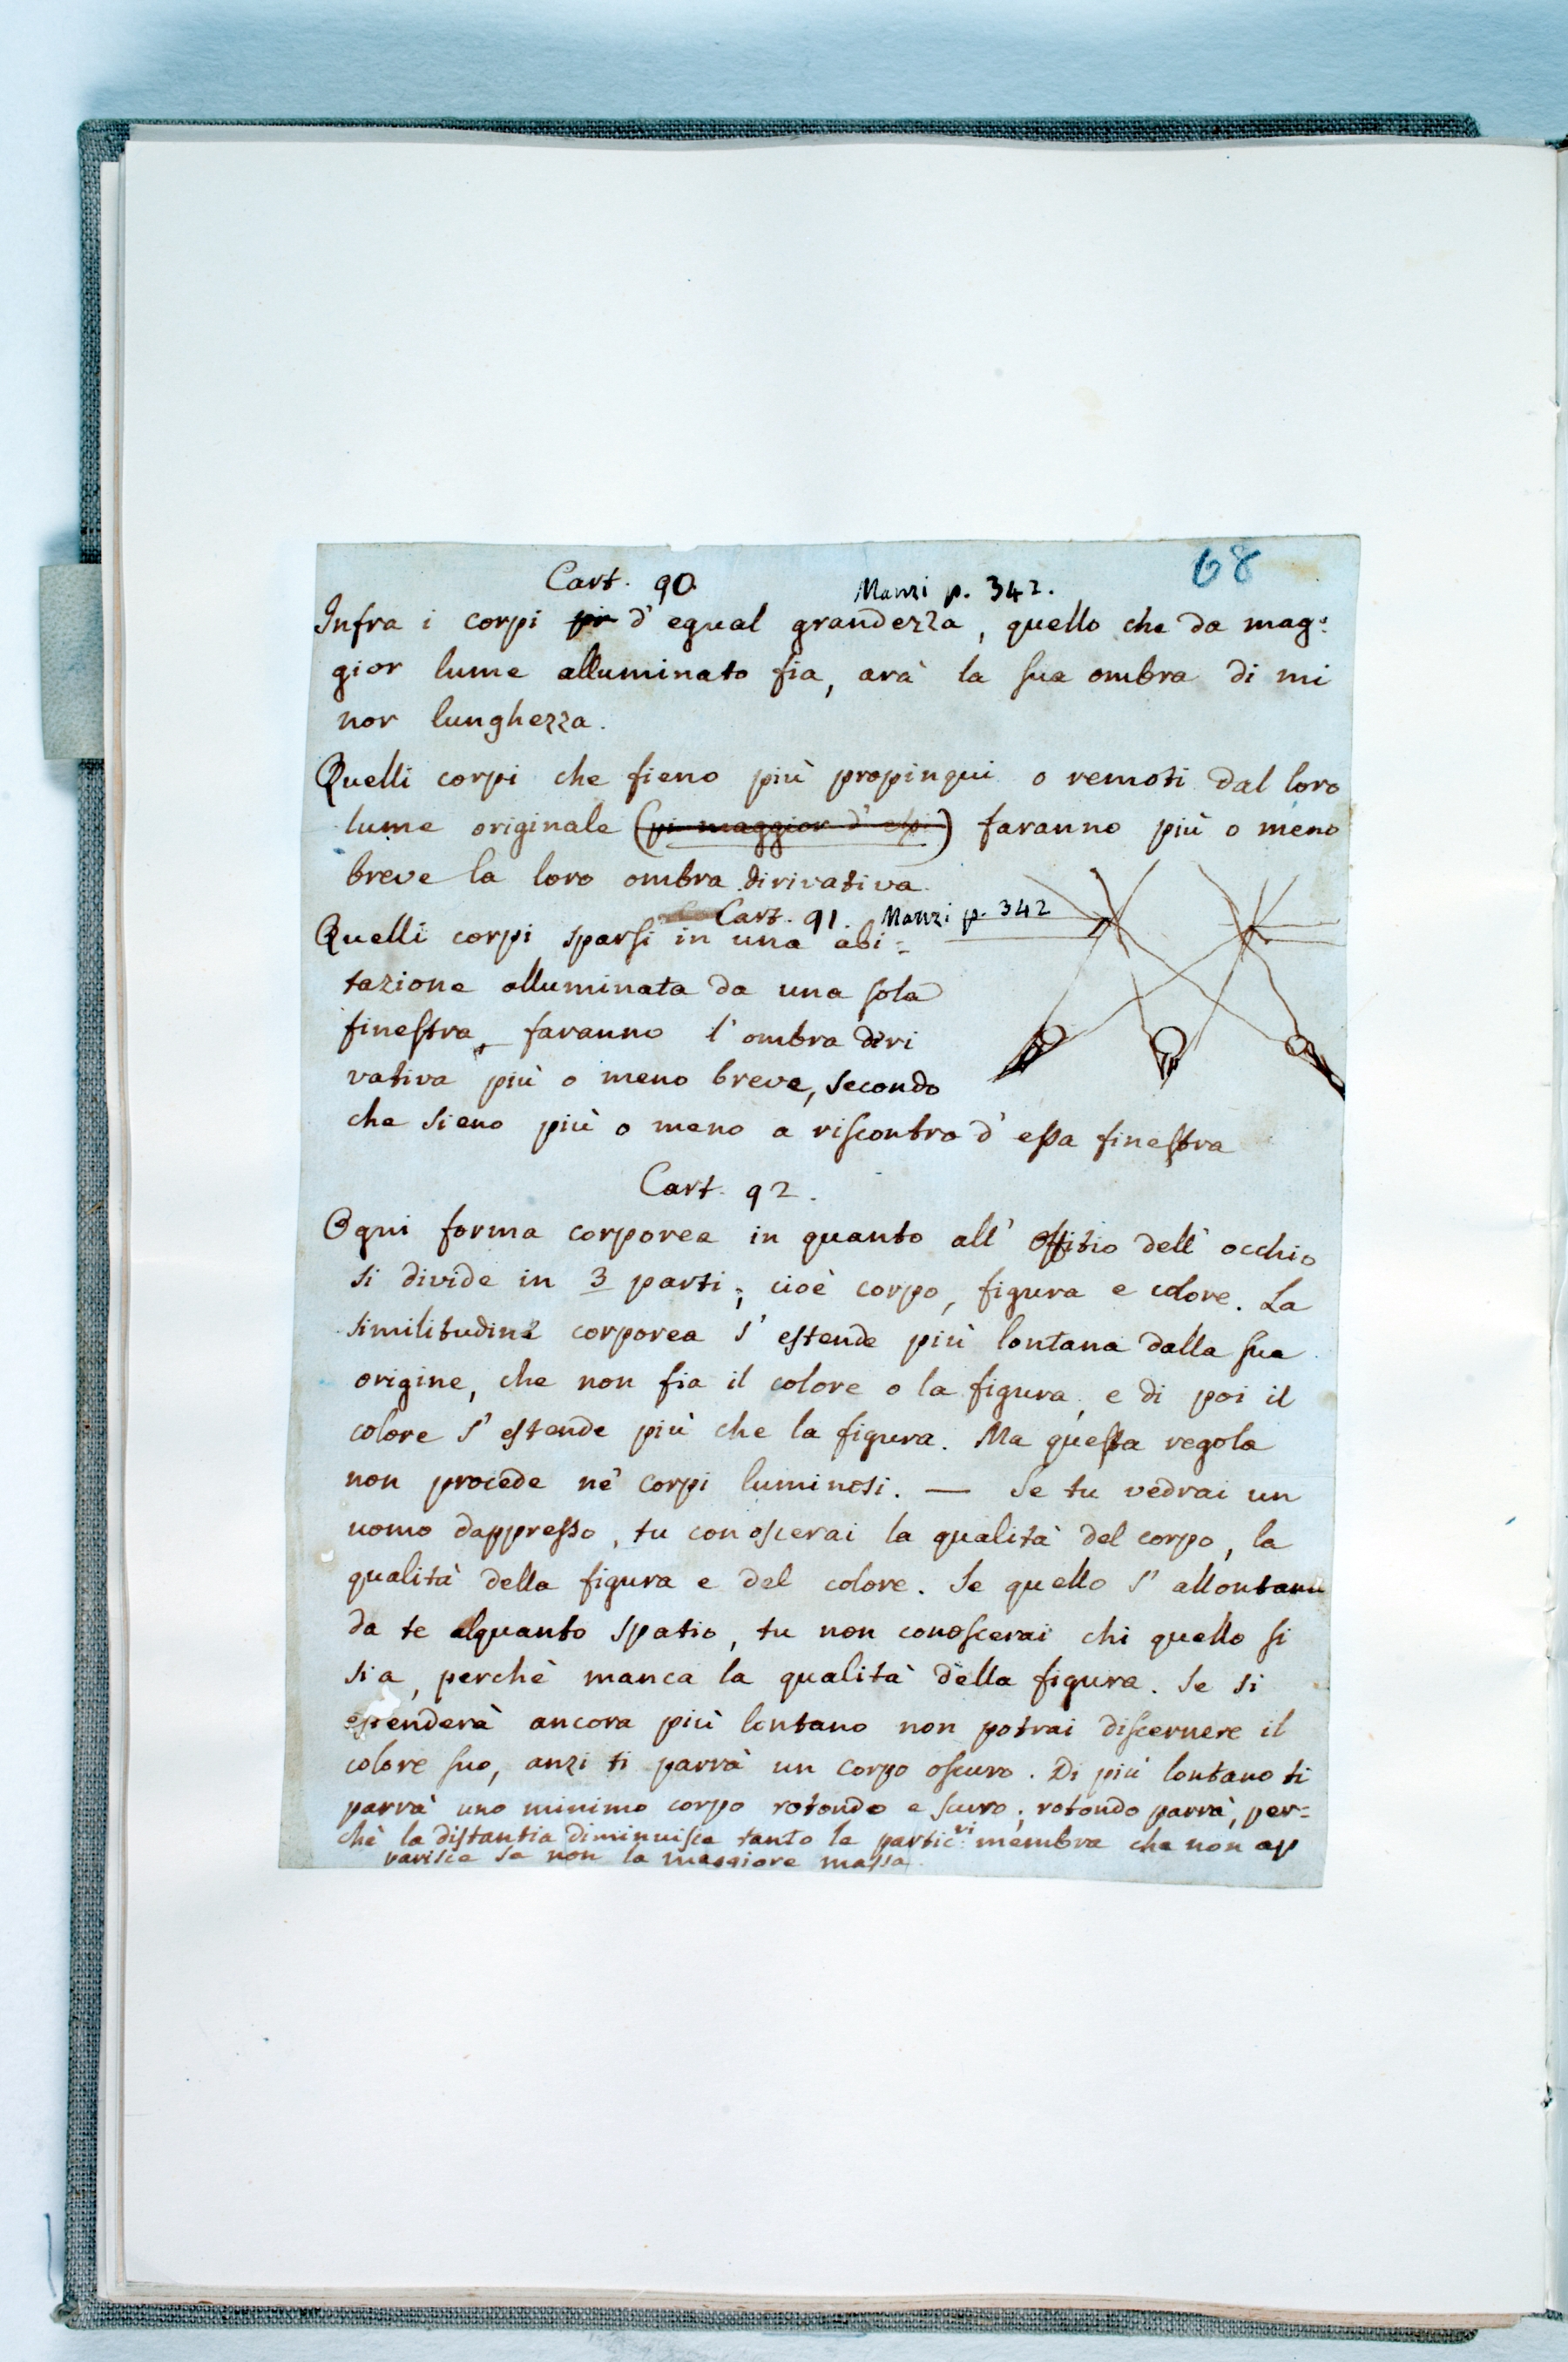 68
Cart. 90. Manzi p. 342.
Infra i corpi pi d'egual grandezza, quello che da mag=
gior lume alluminato fia, arà la sua ombra di mi
nor lunghezza.
Quelli corpi che fieno più propinqui o remoti dal loro
lume originale (pi maggior d' essi) faranno più o meno
breve la loro ombra dirivativa.
Cart. 91. Manzi p. 342
Quelli corpi sparsi in una abi=
tazione alluminata da una sola
finestra, faranno l'ombra diri
vativa più o meno breve, secondo
che sieno più o meno a riscontro d'essa finestra
Cart. 92.
Ogni forma corporea in quanto all' offitio dell' occhio
si divide in 3 parti; cioè corpo, figura e colore. La
similitudine corporea s'estende più lontana dalla sua
origine, che non fia il colore o la figura, e di poi il
colore s'estende più che la figura. Ma questa regola
non procede ne' corpi luminosi. — Se tu vedrai un
uomo dappresso, tu conoscerai la qualità del corpo, la
qualità della figura e del colore. Se quello s'allontanu
da te alquanto spatio, tu non conoscerai chi quello si
sia, perchè manca la qualità della figura. Se si
spenderà ancora più lontano non potrai discernere il
colore suo, anzi ti parrà un corpo oscuro. Di più lontano ti
parrà uno minimo corpo rotondo e scuro; rotondo parrà, per=
chè la distantia diminuisce tanto le partic.ri membra che non ap
parisce se non la maggiore massa.